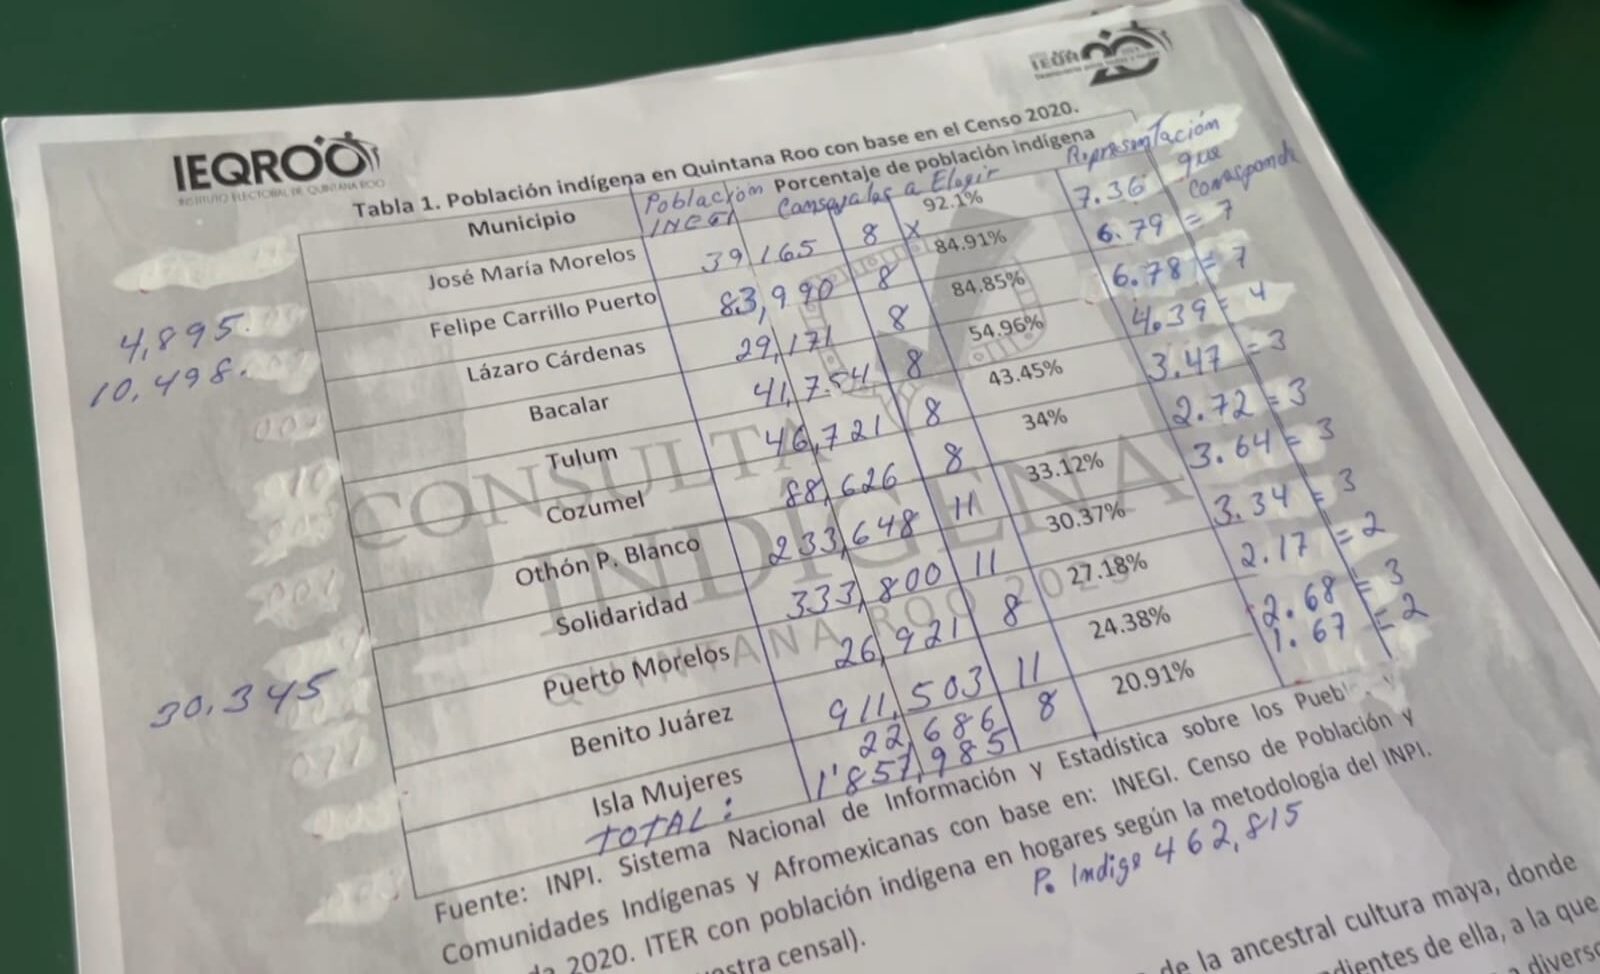 IEQROO
INSTITUTO ELECTORAL DE QUINTANA ROO
IEQROO 20
Tabla 1. Población indígena en Quintana Roo con base en el Censo 2020.
Municipio Población INEGI Porcentaje de población indígena
Consejales a Elegir Representación que corresponde
José María Morelos 39,165 8 x 92.1% 7.36
Felipe Carrillo Puerto 83,990 8 84.91% 6.79 = 7
Lázaro Cárdenas 29,171 8 84.85% 6.78 = 7
Bacalar 41,754 8 54.96% 4.39 = 4
Tulum 46,721 8 43.45% 3.47 = 3
Cozumel 88,626 8 34% 2.72 = 3
Othón P. Blanco 233,648 11 33.12% 3.64 = 3
Solidaridad 333,800 11 30.37% 3.34 = 3
Puerto Morelos 26,921 8 27.18% 2.17 = 2
Benito Juárez 911,503 11 24.38% 2.68 = 3
Isla Mujeres 22,686 8 20.91% 1.67 = 2
TOTAL: 1'857,985
4,895.
10,498.
30,345
CONSULTA
INDÍGENA
QUINTANA ROO
Fuente: INPI. Sistema Nacional de Información y Estadística sobre los Puebl
Comunidades Indígenas y Afromexicanas con base en: INEGI. Censo de Población y
2020. ITER con población indígena en hogares según la metodología del INPI.
stra censal).
P. Indige 462,815
de la ancestral cultura maya, donde
dientes de ella, a la que
divers